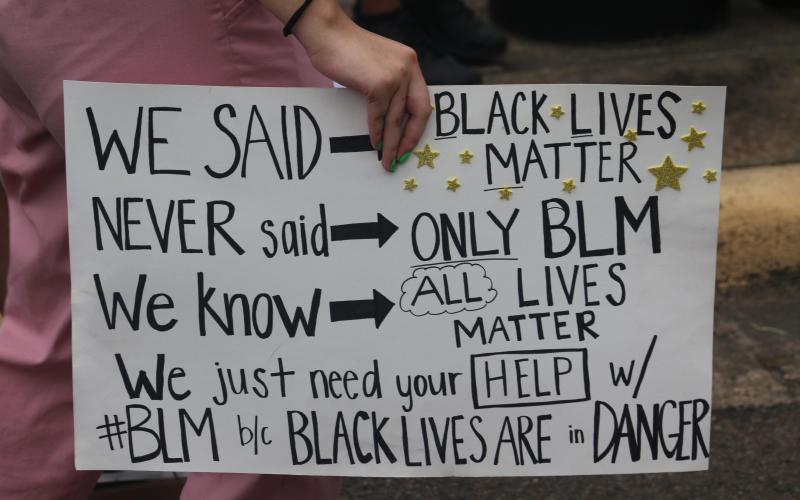 WE SAID BLACK LIVES
MATTER
NEVER said ONLY BLM
We know ALL LIVES
MATTER
We just need your HELP w/
#BLM b/c BLACK LIVES ARE in DANGER